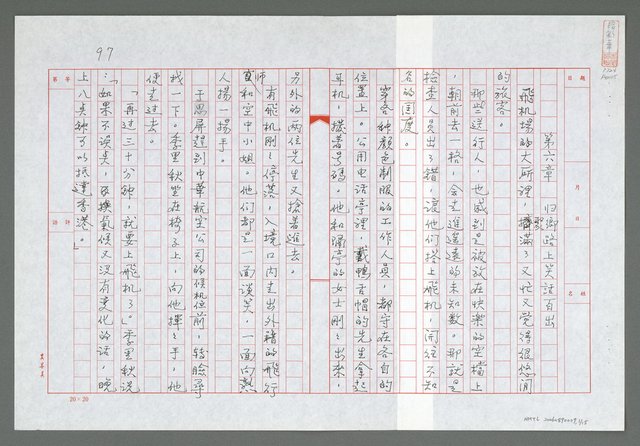 97
第六章 归鄉路上笑話百出
飛机場的大所裡,擠滿了又忙又覺得很悠閒
的旅客。
那些送行人,也感到是被放在快樂的空檔上
,朝前去一格,会走進遙遠的未知數。那就是
檢查人員出了錯,讓他们搭上飛机,開往不知
名的国度。
穿各种顏色制服的工作人員,都守在各自的
位置上。公用电话亭裡,戴鴨舌帽的先生拿起
耳机,撥著号碼。他和隔亭的女士剛剛出來,
另外的兩位先生又搶著進去。
有飛机剛剛停落,入境口內走出外籍的飛行
師和空中小姐。他们都是一面談笑,一面向熱
人揚一揚手。
于思屏趕到中華航空公司的候机位前,轉臉尋
找一下。季里秋坐在椅子上,向他揮了手,他
便走过去。
「再过三十分鐘,就要上飛机了。」季里秋说
:「如果不误点,気候又没有变化的话,晚
上八点鐘可以抵達香港。」
題目
月 日
姓名
等第
評語
20×20